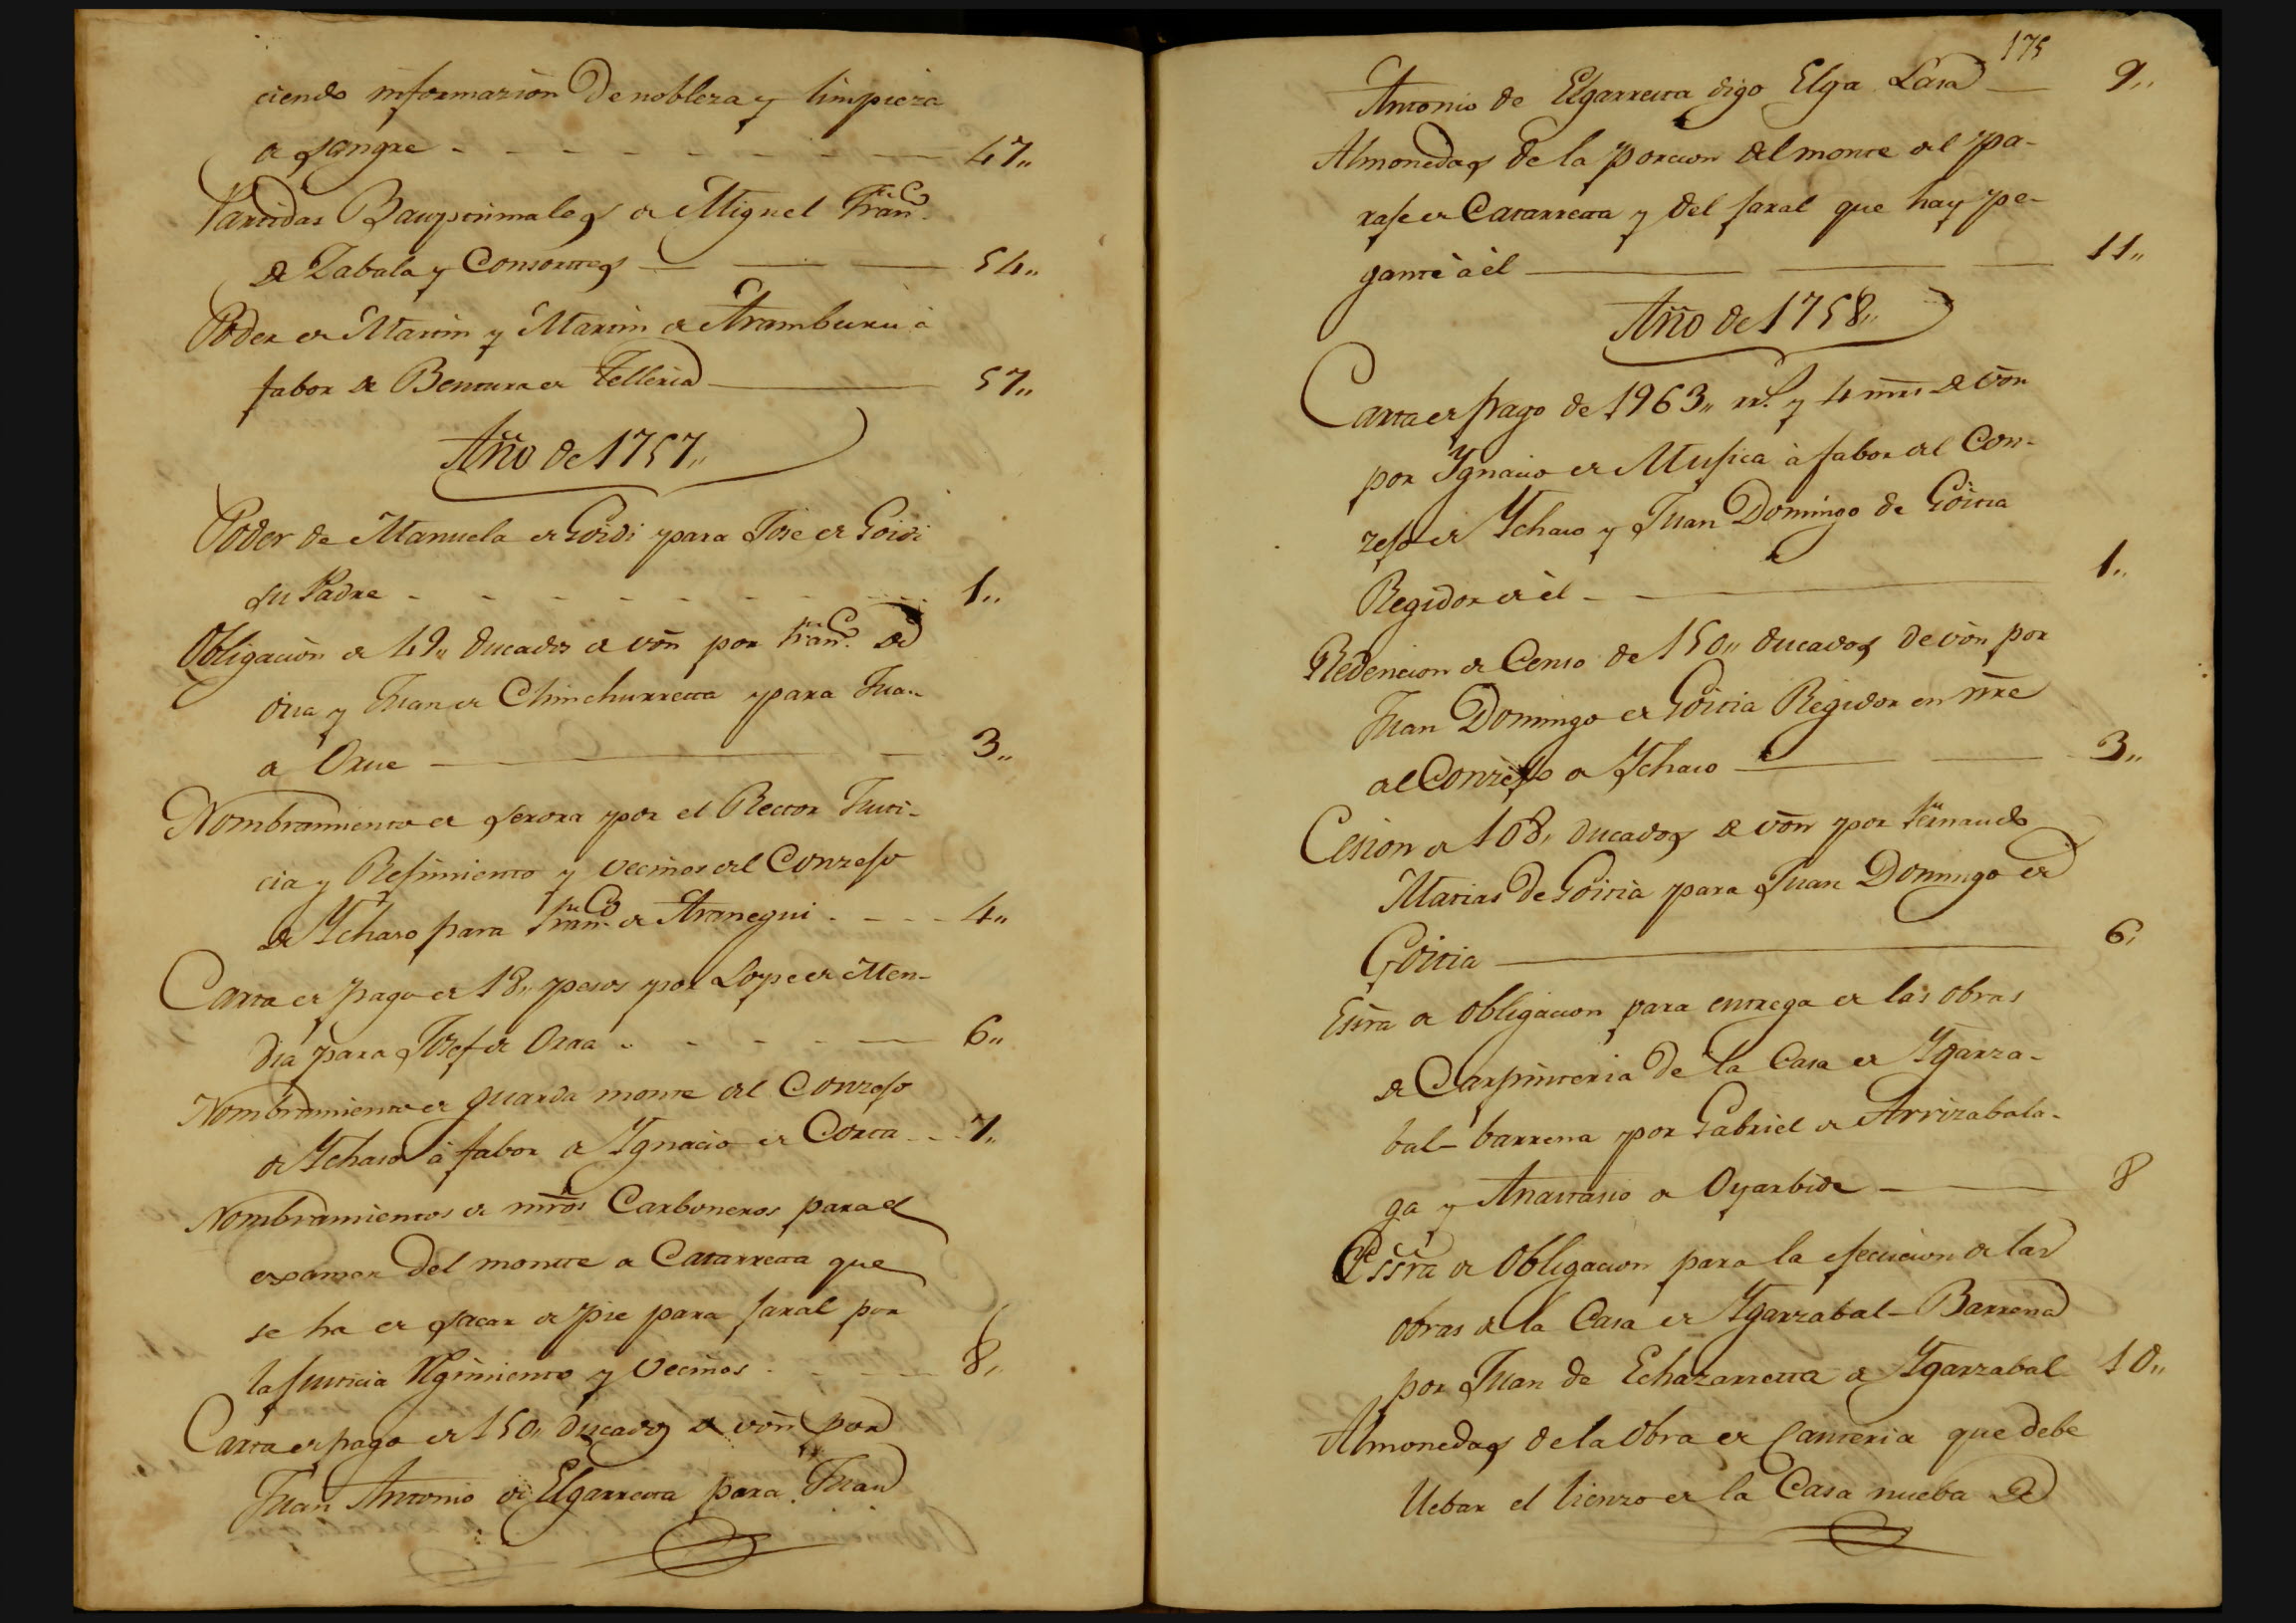 ciendo informazion de nobleza y limpieza
de sangre - - - - - - - - 47,,
Partidas Bauptismales de Miguel Fran.co
de Zabala y Consortes — — — 54,,
Poder de Martin y Martin de Aramburu à
fabor de Bentura de Telleria — 57,,
Año de 1757,,
Poder de Manuela de Goidi para Jose de Goidi
su Padre - - - - - - - - 1,,
Obligación de 49,, ducados de von por Fran.co de
oria y Juan de Chinchurreta para Juan
de Orue — 3,,
Nombramiento de serora por el Rector Justi-
cia y Rejimiento y vecinos del Conzejo
de Ychaso para Fran.co de Aranegui - - - - 4,,
Carta de pago de 18,, pesos por Lope de Men-
dia para Josef de Oraa - - - - - 6,,
Nombramiento de guarda monte del Conzejo
de Ychaso à fabor de Ygnacio de Corta - - 7,,
Nombramientos de mros Carboneros para el
examen del monte de Catarreta que
se ha de sacar de pie para jaral por
la justicia Rgimiento y Vecinos - - - - 8,,
Carta de pago de 150,, ducados de von por
Juan Antonio de Elgarreta para Juan
175
Antonio de Elgarreta digo Elga Lasa — 9,,
Almonedas de la porcion del monte del pa-
raje de Catarreta y del jaral que hay pe-
gante à èl — — — 11,,
Año de 1758,,
Carta de pago de 1963,, rr.s y 4 mrs de von
por Ygnacio de Mujica à fabor del Con-
zejo de Ychaso y Juan Domingo de Goitia
Regidor de èl - — 1,,
Redencion de Censo de 150,, ducados de von por
Juan Domingo de Goitia Regidor en nre
del Conzejo de Ychaso — — 3,,
Cesion de 108,, ducados de von por Fernando
Matias de Goitia para Juan Domingo de
Goitia — 6,
Essra de obligacion para entrega de las obras
de Carpinteria de la Casa de Ygarza-
bal-barrena por Gabriel de Arrizabala-
ga y Anastasio de Oyarbide — 8
Essra de Obligacion para la ejecucion de las
obras de la Casa de Ygarzabal-Barrena
por Juan de Echazarreta de Ygarzabal 10,,
Almonedas de la Obra de Canteria que debe
llebar el lienzo de la Casa nueba de